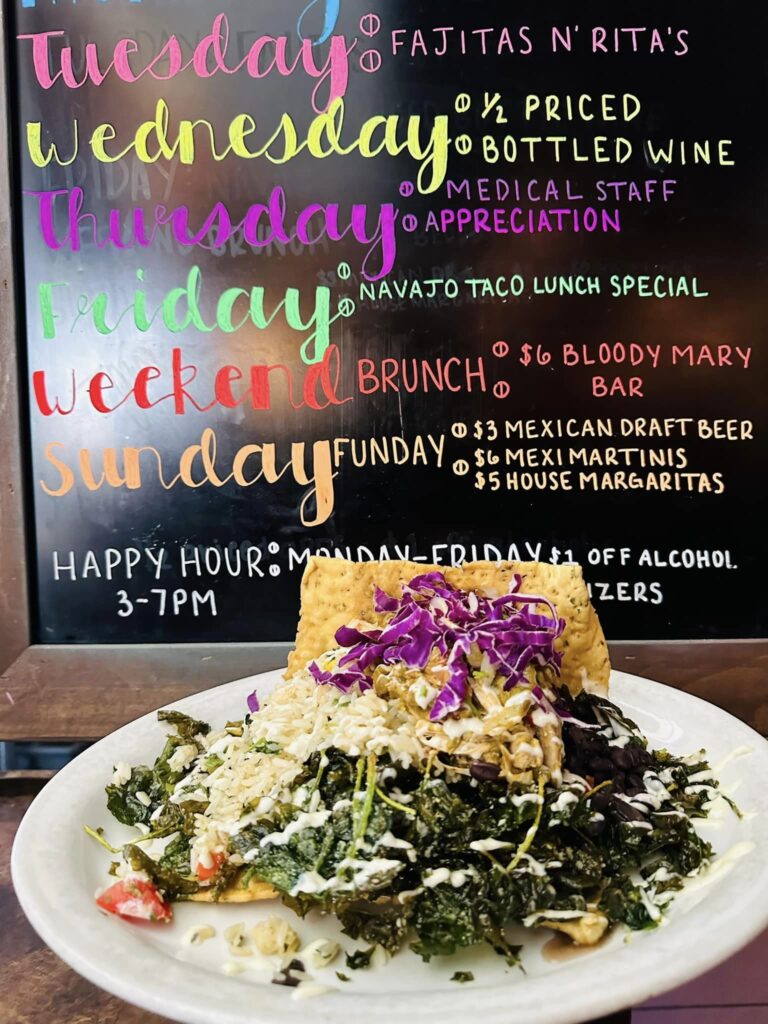 Tuesday: FAJITAS N' RITA'S
Wednesday: ½ PRICED
BOTTLED WINE
Thursday: MEDICAL STAFF
APPRECIATION
Friday: NAVAJO TACO LUNCH SPECIAL
Weekend BRUNCH: $6 BLOODY MARY
BAR
Sunday FUNDAY: $3 MEXICAN DRAFT BEER
$6 MEXI MARTINIS
$5 HOUSE MARGARITAS
HAPPY HOUR: MONDAY-FRIDAY $1 OFF ALCOHOL
3-7PM